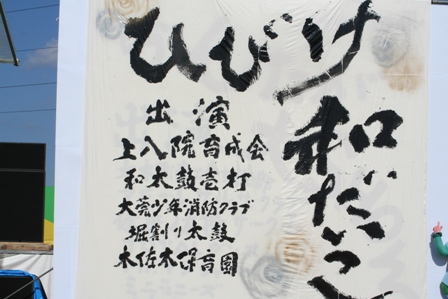 ひびけ
和だいこ
出演
上八院育成会
和太鼓壱打
大莞少年消防クラブ
堀割り太鼓
木佐木保育園